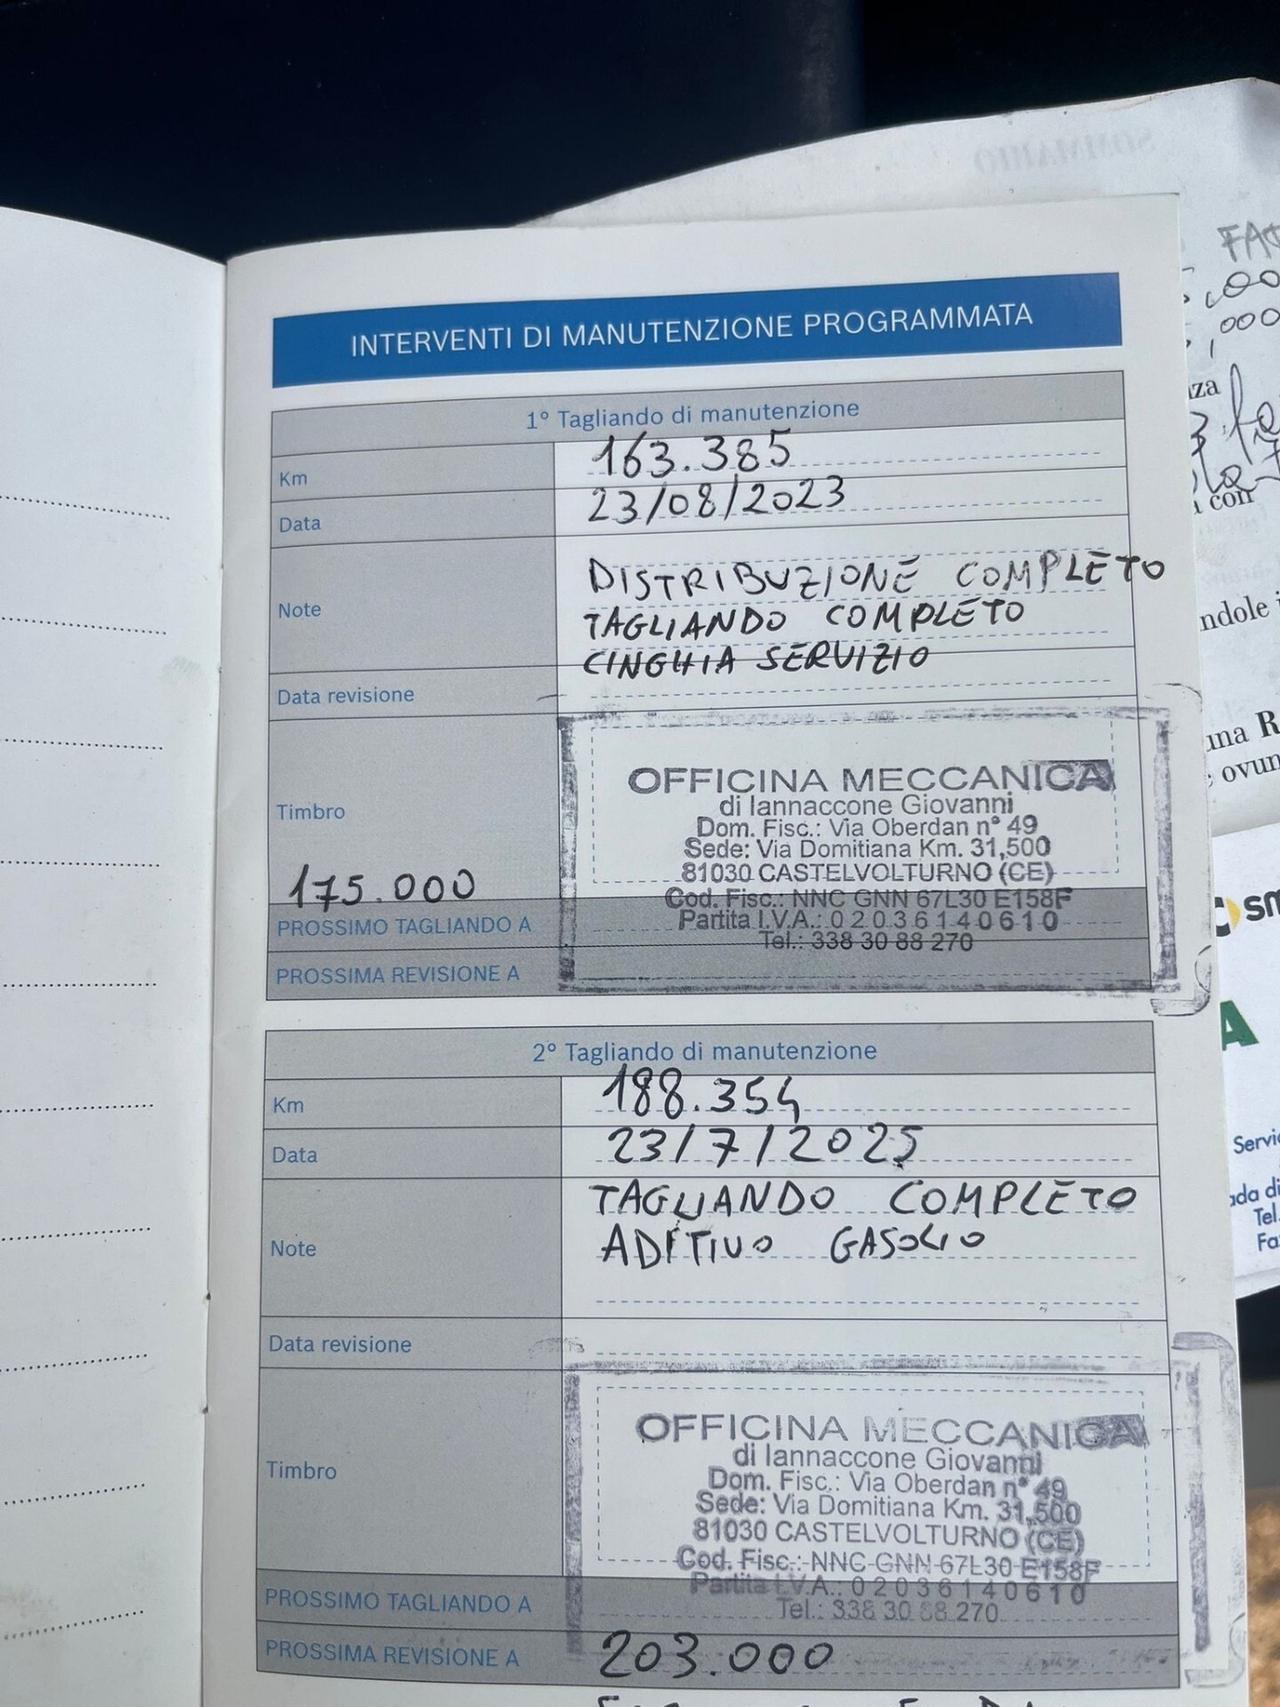 INTERVENTI DI MANUTENZIONE PROGRAMMATA
1° Tagliando di manutenzione
Km 163.385
Data 23/08/2023
Note DISTRIBUZIONE COMPLETO
TAGLIANDO COMPLETO
CINGHIA SERVIZIO
Data revisione
Timbro
OFFICINA MECCANICA
di Iannaccone Giovanni
Dom. Fisc.: Via Oberdan n° 49
Sede: Via Domitiana Km. 31,500
81030 CASTELVOLTURNO (CE)
Cod. Fisc.: NNC GNN 67L30 E158F
Partita I.V.A.: 0 2 0 3 6 1 4 0 6 1 0
Tel.: 338 30 88 270
175.000
PROSSIMO TAGLIANDO A
PROSSIMA REVISIONE A
2° Tagliando di manutenzione
Km 188.354
Data 23/7/2025
Note TAGLIANDO COMPLETO
ADITIVO GASOLIO
Data revisione
Timbro
OFFICINA MECCANICA
di Iannaccone Giovanni
Dom. Fisc.: Via Oberdan n° 49
Sede: Via Domitiana Km. 31,500
81030 CASTELVOLTURNO (CE)
Cod. Fisc.: NNC GNN 67L30 E158F
Partita I.V.A.: 0 2 0 3 6 1 4 0 6 1 0
Tel.: 338 30 88 270
PROSSIMO TAGLIANDO A
PROSSIMA REVISIONE A 203.000
SOMMARIO
con
ndole
una R
ovun
Servi
Tel.